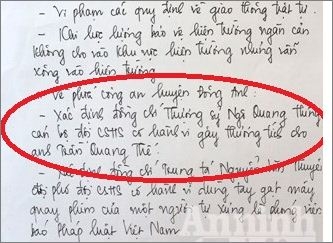 - Vi phạm các quy định về giao thông trật tự.
- Khi lực lượng bảo vệ hiện trường ngăn cản
không cho vào khu vực hiện trường nhưng vẫn
xông vào hiện trường.
Về phía công an huyện Đông Anh:
- Xác định đồng chí Thượng sỹ Ngô Quang Hưng
cán bộ đội CSHS có hành vi gây thương tích cho
anh Trần Quang Thế.
- Xác định đồng chí Trung tá Nguyễn
đội phó đội CSHS có hành vi dùng tay gạt máy
quay phim của một người tự xưng là phóng viên
báo Pháp luật Việt Nam